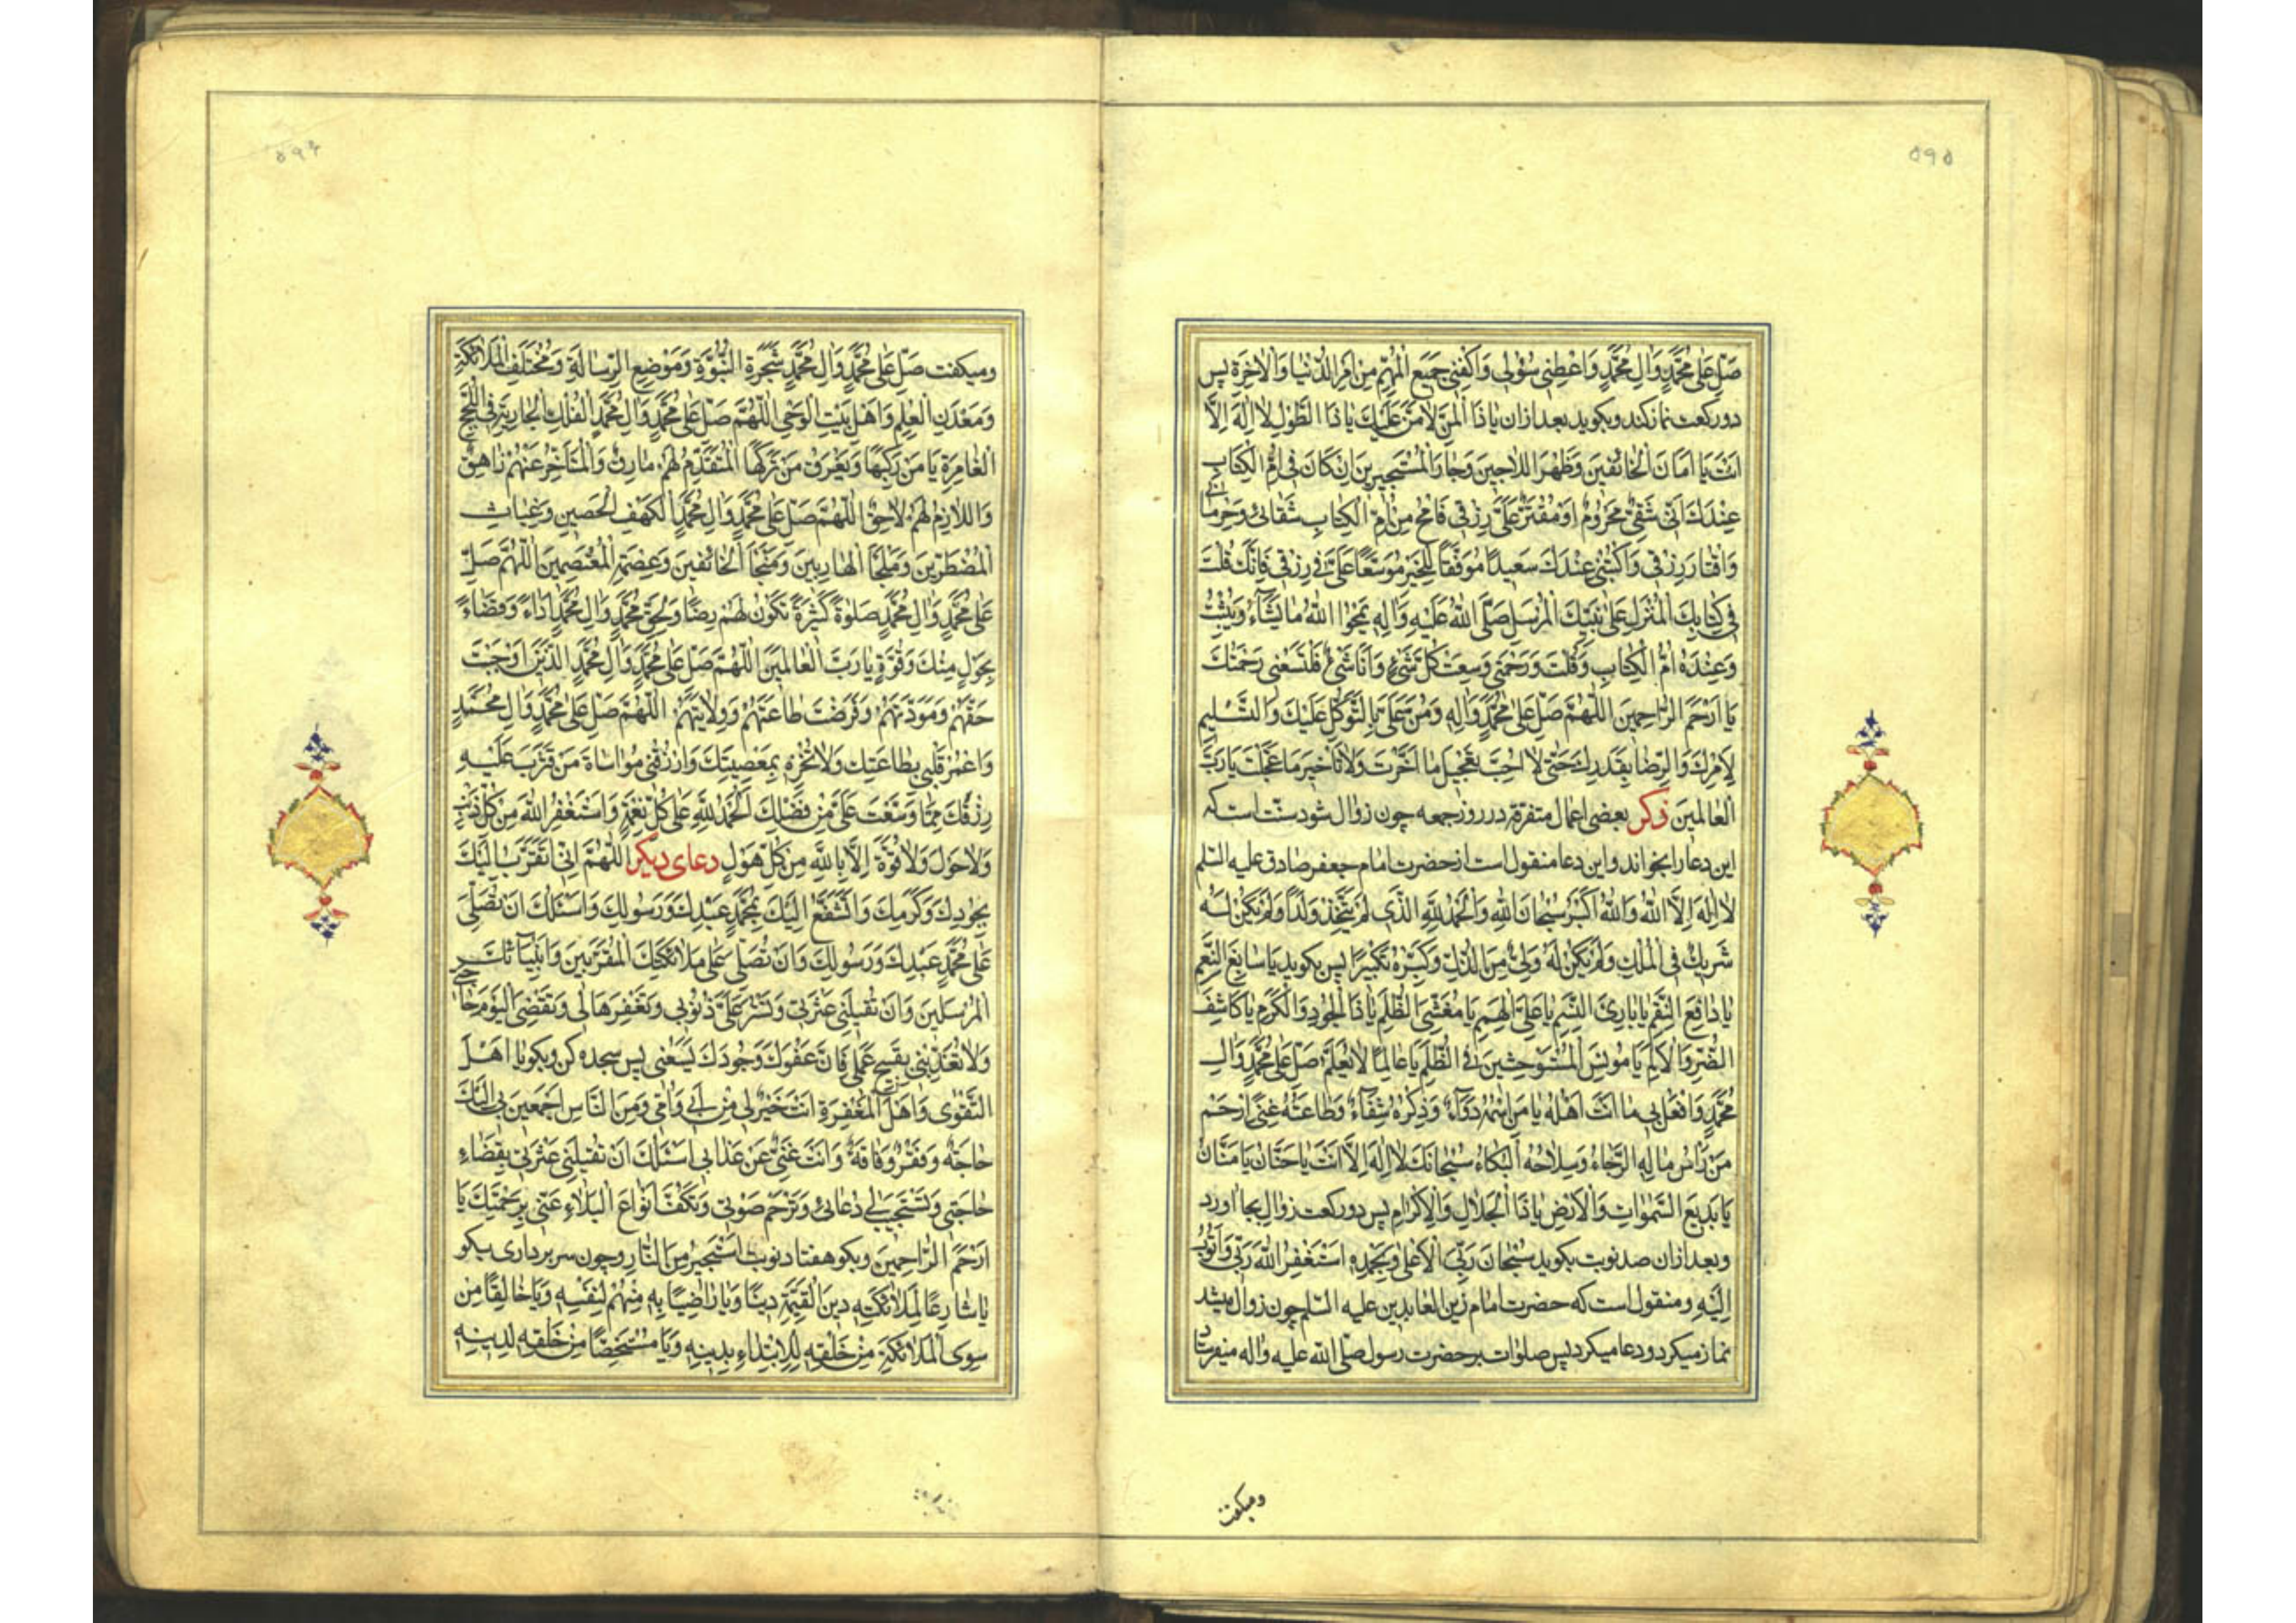 ۵۹۵
صَلِّ عَلىٰ مُحَمَّدٍ وَاٰلِ مُحَمَّدٍ وَاعْطِنی سُؤْلی وَاكْفِنی جَمیعَ الْمُهِمِّ مِنْ اَمْرِ الدُّنْیٰا وَالْاٰخِرَةِ پس
دو ركعت نماز كند و بكوید بعد ازان یٰا ذَا الْمَنِّ لٰا مَنَّ عَلَیْكَ یٰا ذَا الطَّوْلِ لٰا اِلٰهَ اِلّٰا
اَنْتَ یٰا اَمٰانَ الْخٰائفینَ وَظَهْرَ اللّٰاجینَ وَجٰارَ الْمُسْتَجیرینَ اِنْ كٰانَ فی اُمِّ الْكِتٰابِ
عِنْدَكَ اَنّی شَقِیٌّ مَحْرُومٌ اَوْ مُقْتَرٌّ عَلَیَّ رِزْقی فَامْحُ مِنْ اُمِّ الْكِتٰابِ شَقٰائی وَحِرْمٰانی
وَاقْتٰارَ رِزْقی وَاكْتُبْنی عِنْدَكَ سَعیدًا مُوَفَّقًا لِلْخَیْرِ مُوَسَّعًا عَلَیَّ فی رِزْقی فَاِنَّكَ قُلْتَ
فی كِتٰابِكَ الْمُنْزَلِ عَلىٰ نَبِیِّكَ الْمُرْسَلِ صَلَّى اللهُ عَلَیْهِ وَاٰلِهِ یَمْحُوا اللهُ مٰا یَشٰاءُ وَیُثْبِتُ
وَعِنْدَهُ اُمُّ الْكِتٰابِ وَقُلْتَ وَرَحْمَتی وَسِعَتْ كُلَّ شَیْءٍ وَاَنَا شَیْءٌ فَلْتَسَعْنی رَحْمَتُكَ
یٰا اَرْحَمَ الرّٰاحِمینَ اللّٰهُمَّ صَلِّ عَلىٰ مُحَمَّدٍ وَاٰلِهِ وَمُنَّ عَلَیَّ بِالتَّوَكُّلِ عَلَیْكَ وَالتَّسْلیمِ
لِاَمْرِكَ وَالرِّضٰا بِقَدَرِكَ حَتّىٰ لٰا اُحِبَّ تَعْجیلَ مٰا اَخَّرْتَ وَلٰا تَأْخیرَ مٰا عَجَّلْتَ یٰا رَبَّ
الْعٰالَمینَ ذكر بعضی اعمال متفرقه در روز جمعه چون زوال شود سنّت است كه
این دعا را بخواند و این دعا منقول است از حضرت امام جعفر صادق علیه السّلم
لٰا اِلٰهَ اِلَّا اللهُ وَاللهُ اَكْبَرُ سُبْحٰانَ اللهِ وَالْحَمْدُ لِلّٰهِ الَّذی لَمْ یَتَّخِذْ وَلَدًا وَلَمْ یَكُنْ لَهُ
شَریكٌ فی الْمُلْكِ وَلَمْ یَكُنْ لَهُ وَلِیٌّ مِنَ الذُّلِّ وَكَبِّرْهُ تَكْبیرًا پس بكوید یٰا سٰابِغَ النِّعَمِ
یٰا دٰافِعَ النِّقَمِ یٰا بٰارِئَ النَّسَمِ یٰا عَلِیَّ الْهِمَمِ یٰا مُغَشِّیَ الظُّلَمِ یٰا ذَا الْجُودِ وَالْكَرَمِ یٰا كٰاشِفَ
الضُّرِّ وَالْاَلَمِ یٰا مُونِسَ الْمُسْتَوْحِشینَ فِی الظُّلَمِ یٰا عٰالِمًا لٰا یُعَلَّمُ صَلِّ عَلىٰ مُحَمَّدٍ وَاٰلِ
مُحَمَّدٍ وَافْعَلْ بی مٰا اَنْتَ اَهْلُهُ یٰا مَنِ اسْمُهُ دَوٰاءٌ وَذِكْرُهُ شِفٰاءٌ وَطٰاعَتُهُ غِنًى اِرْحَمْ
مَنْ رَاْسُ مٰالِهِ الرَّجٰاءُ وَسِلٰاحُهُ الْبُكٰاءُ سُبْحٰانَكَ لٰا اِلٰهَ اِلّٰا اَنْتَ یٰا حَنّٰانُ یٰا مَنّٰانُ
یٰا بَدیعَ السَّمٰوٰاتِ وَالْاَرْضِ یٰا ذَا الْجَلٰالِ وَالْاِكْرٰامِ پس دو ركعت زوال بجا اورد
و بعد ازان صد نوبت بكوید سُبْحٰانَ رَبِّیَ الْاَعْلىٰ وَبِحَمْدِهِ اَسْتَغْفِرُ اللهَ رَبّی وَاَتُوبُ
اِلَیْهِ و منقول است كه حضرت امام زین العابدین علیه السّلم چون زوال میشد
نماز میكرد و دعا میكرد پس صلوات بر حضرت رسول صلّی الله علیه واله میفرستاد
ومیكفت
۵۹۶
ومیكفت صَلِّ عَلىٰ مُحَمَّدٍ وَاٰلِ مُحَمَّدٍ شَجَرَةِ النُّبُوَّةِ وَمَوْضِعِ الرِّسٰالَةِ وَمُخْتَلَفِ الْمَلٰائكَةِ
وَمَعْدَنِ الْعِلْمِ وَاَهْلِ بَیْتِ الْوَحْیِ اللّٰهُمَّ صَلِّ عَلىٰ مُحَمَّدٍ وَاٰلِ مُحَمَّدٍ الْفُلْكِ الْجٰارِیَةِ فِی اللُّجَجِ
الْغٰامِرَةِ یَاْمَنُ مَنْ رَكِبَهٰا وَیَغْرَقُ مَنْ تَرَكَهَا الْمُتَقَدِّمُ لَهُمْ مٰارِقٌ وَالْمُتَاَخِّرُ عَنْهُمْ زٰاهِقٌ
وَاللّٰازِمُ لَهُمْ لٰاحِقٌ اللّٰهُمَّ صَلِّ عَلىٰ مُحَمَّدٍ وَاٰلِ مُحَمَّدٍ الْكَهْفِ الْحَصینِ وَغِیٰاثِ
الْمُضْطَرّینَ وَمَلْجَأِ الْهٰارِبینَ وَمَنْجَأِ الْخٰائفینَ وَعِصْمَةِ الْمُعْتَصِمینَ اللّٰهُمَّ صَلِّ
عَلىٰ مُحَمَّدٍ وَاٰلِ مُحَمَّدٍ صَلٰوةً كَثیرَةً تَكُونُ لَهُمْ رِضًا وَلِحَقِّ مُحَمَّدٍ وَاٰلِ مُحَمَّدٍ اَدٰاءً وَقَضٰاءً
بِحَوْلٍ مِنْكَ وَقُوَّةٍ یٰا رَبَّ الْعٰالَمینَ اللّٰهُمَّ صَلِّ عَلىٰ مُحَمَّدٍ وَاٰلِ مُحَمَّدٍ الَّذینَ اَوْجَبْتَ
حَقَّهُمْ وَمَوَدَّتَهُمْ وَفَرَضْتَ طٰاعَتَهُمْ وَوِلٰایَتَهُمْ اللّٰهُمَّ صَلِّ عَلىٰ مُحَمَّدٍ وَاٰلِ مُحَمَّدٍ
وَاعْمُرْ قَلْبی بِطٰاعَتِكَ وَلٰا تُخْزِهِ بِمَعْصِیَتِكَ وَارْزُقْنی مُوٰاسٰاةَ مَنْ قَتَّرْتَ عَلَیْهِ
رِزْقَكَ مِمّٰا وَسَّعْتَ عَلَیَّ مِنْ فَضْلِكَ اَلْحَمْدُ لِلّٰهِ عَلىٰ كُلِّ نِعْمَةٍ وَاَسْتَغْفِرُ اللهَ مِنْ كُلِّ ذَنْبٍ
وَلٰا حَوْلَ وَلٰا قُوَّةَ اِلّٰا بِاللّٰهِ مِنْ كُلِّ هَوْلٍ دعای دیكر اللّٰهُمَّ اِنّی اَتَقَرَّبُ اِلَیْكَ
بِجُودِكَ وَكَرَمِكَ وَاَتَشَفَّعُ اِلَیْكَ بِمُحَمَّدٍ عَبْدِكَ وَرَسُولِكَ وَاَسْئَلُكَ اَنْ تُصَلِّیَ
عَلىٰ مُحَمَّدٍ عَبْدِكَ وَرَسُولِكَ وَاَنْ تُصَلِّیَ عَلىٰ مَلٰائكَتِكَ الْمُقَرَّبینَ وَاَنْبِیٰائكَ
الْمُرْسَلینَ وَاَنْ تُقیلَنی عَثْرَتی وَتَسْتُرَ عَلَیَّ ذُنُوبی وَتَغْفِرَهٰا لی وَتَقْضِیَ الْیَوْمَ حٰاجَتی
وَلٰا تُعَذِّبَنی بِقَبیحِ عَمَلی فَاِنَّ عَفْوَكَ وَجُودَكَ یَسَعُنی پس سجده كن وبكو یٰا اَهْلَ
التَّقْوىٰ وَاَهْلَ الْمَغْفِرَةِ اَنْتَ خَیْرٌ لی مِنْ اَبی وَاُمّی وَمِنَ النّٰاسِ اَجْمَعینَ بی اِلَیْكَ
حٰاجَةٌ وَفَقْرٌ وَفٰاقَةٌ وَاَنْتَ غَنِیٌّ عَنْ عَذٰابی اَسْئَلُكَ اَنْ تُقیلَنی عَثْرَتی بِقَضٰاءِ
حٰاجَتی وَتَسْتَجیبَ لی دُعٰائی وَتَرْحَمَ صَوْتی وَتَكُفَّ اَنْوٰاعَ الْبَلٰاءِ عَنّی بِرَحْمَتِكَ یٰا
اَرْحَمَ الرّٰاحِمینَ وبكو هفتاد نوبت اَسْتَجیرُ مِنَ النّٰارِ وچون سر برداری بكو
یٰا شٰارِعًا لِمَلٰائكَتِهِ دینَ الْقَیِّمَةِ دینًا وَیٰا رٰاضِیًا بِهِ مِنْهُمْ لِنَفْسِهِ وَیٰا خٰالِقًا مَنْ
سِوَى الْمَلٰائكَةِ مِنْ خَلْقِهِ لِلْاِبْتِدٰاءِ بِدینِهِ وَیٰا مُسْتَخِصًّا مِنْ خَلْقِهِ لِدینِهِ